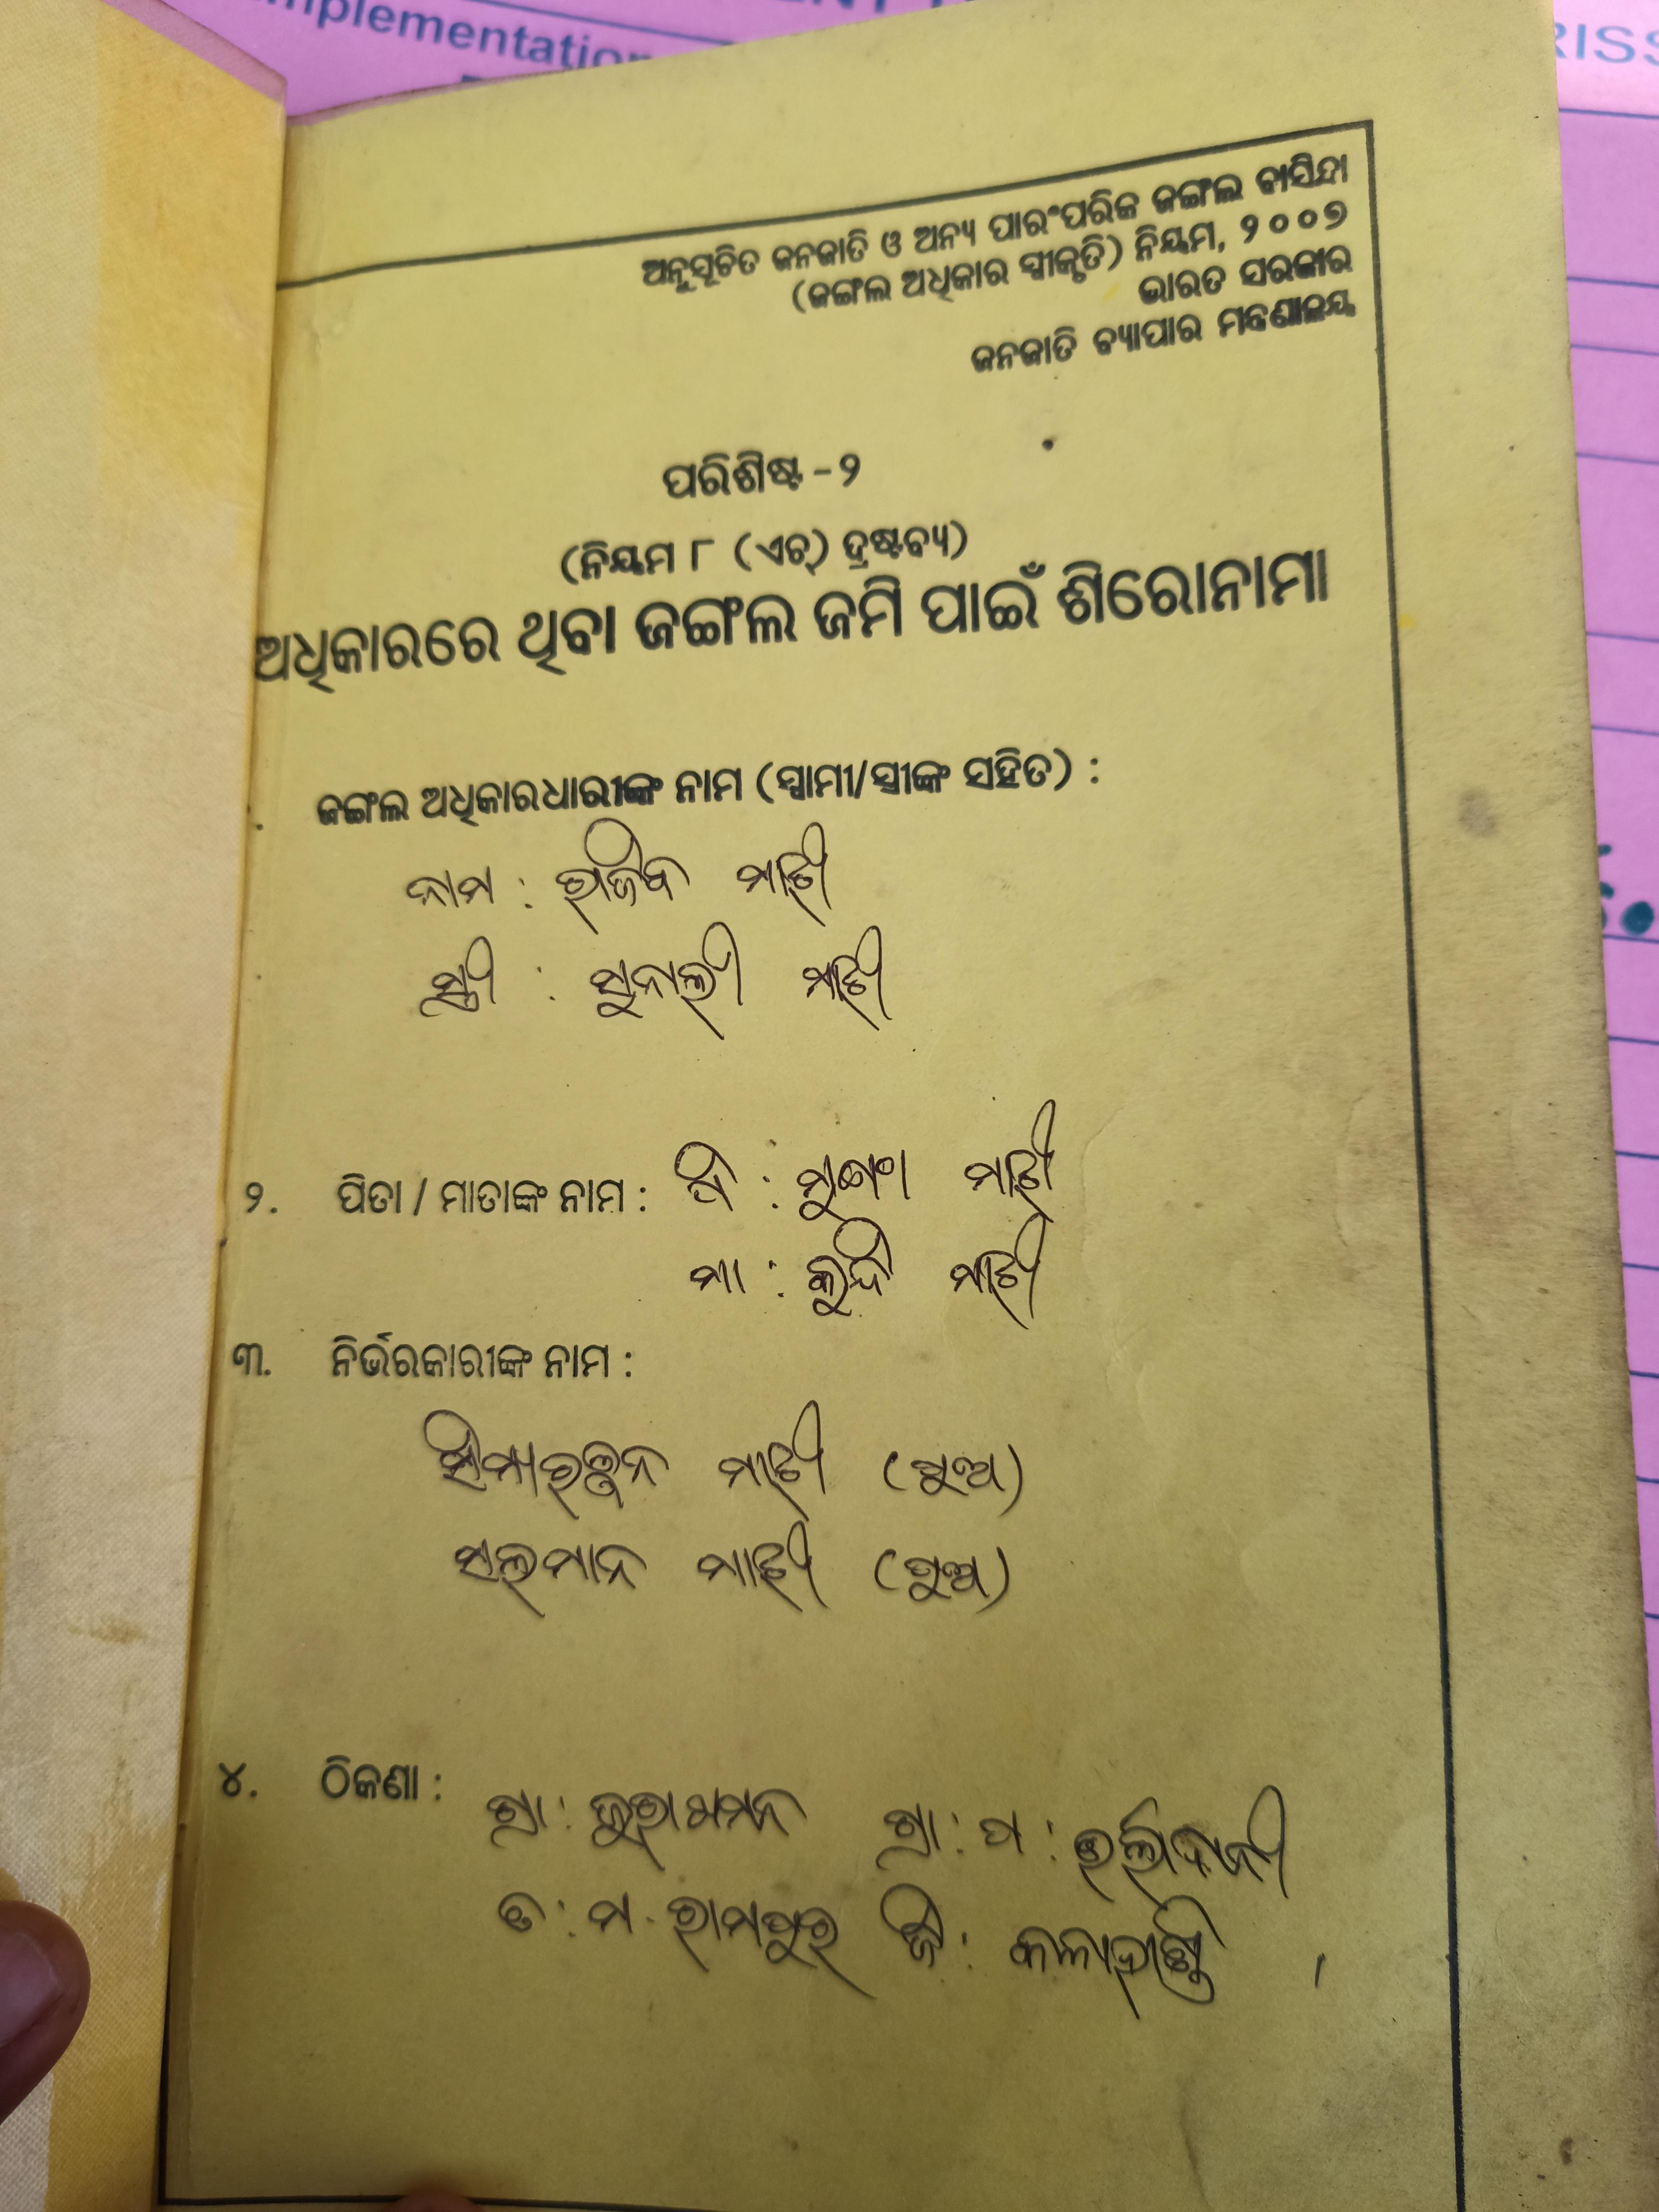 mplementation
RISS
ଅନୁସୂଚିତ ଜନଜାତି ଓ ଅନ୍ୟ ପାରଂପରିକ ଜଙ୍ଗଲ ବାସିନ୍ଦା
(ଜଙ୍ଗଲ ଅଧିକାର ସ୍ୱୀକୃତି) ନିୟମ, ୨୦୦୭
ଭାରତ ସରକାର
ଜନଜାତି ବ୍ୟାପାର ମନ୍ତ୍ରଣାଳୟ
ପରିଶିଷ୍ଟ - ୨
(ନିୟମ ୮ (ଏଚ୍) ଦ୍ରଷ୍ଟବ୍ୟ)
ଅଧିକାରରେ ଥିବା ଜଙ୍ଗଲ ଜମି ପାଇଁ ଶିରୋନାମା
ଜଙ୍ଗଲ ଅଧିକାରଧାରୀଙ୍କ ନାମ (ସ୍ୱାମୀ/ସ୍ତ୍ରୀଙ୍କ ସହିତ) :
ନାମ : ରାଜିବ ମାଝୀ
ସ୍ତ୍ରୀ : ସୁନାଲୀ ମାଝୀ
୨. ପିତା / ମାତାଙ୍କ ନାମ : ପି : ମାଝୀ
ମା : କୁନ୍ଦି ମାଝୀ
୩. ନିର୍ଭରକାରୀଙ୍କ ନାମ :
ମାଝୀ (ପୁଅ)
ସଲମାନ ମାଝୀ (ପୁଅ)
୪. ଠିକଣା : ଗ୍ରା : ଗ୍ରା : ପ :
ତ : ମ. ରାମପୁର ଜି : କଳାହାଣ୍ଡି